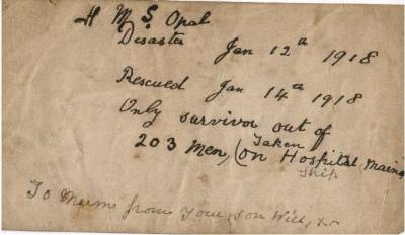 H M S. Opal
Desaster Jan 12th 1918
Rescued Jan 14th 1918
Only survivor out of
203 men, (on Hospital Maine
Taken
Ship
To Mums from Your Son Will,